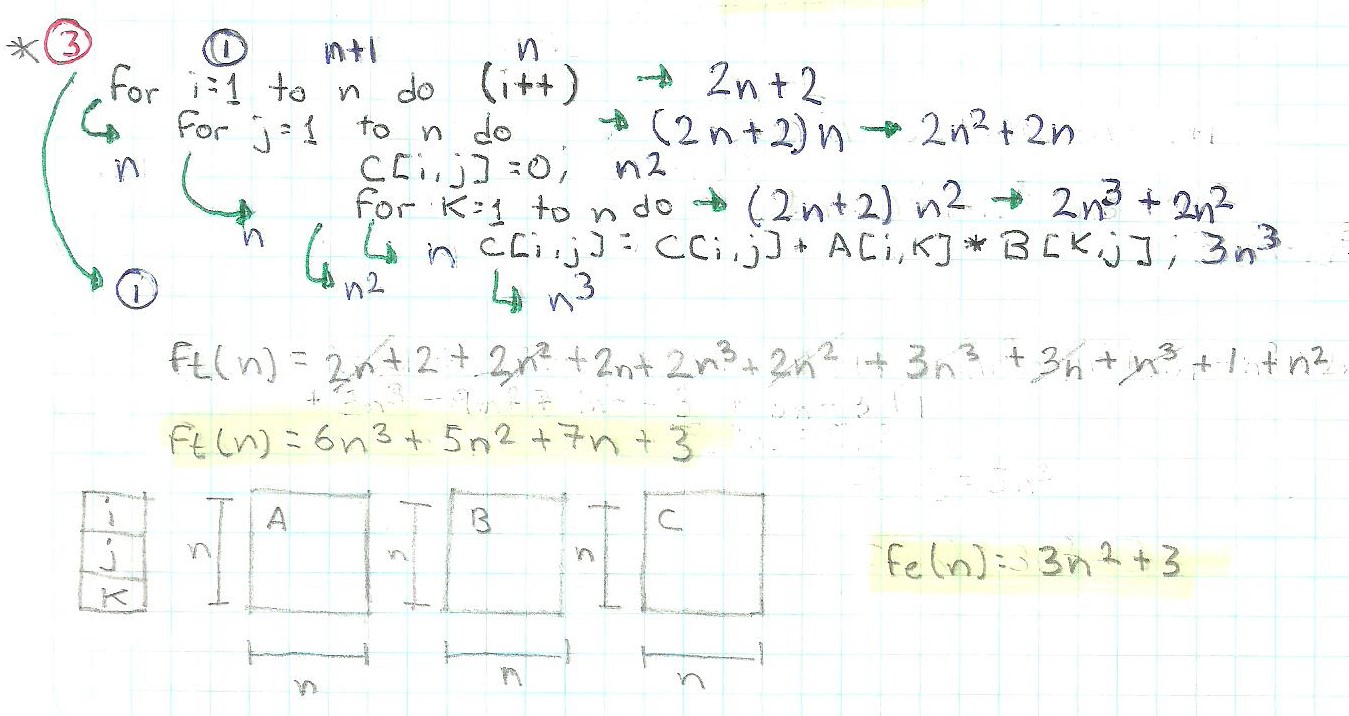 * ③ ① n+1 n
for i=1 to n do (i++) → 2n+2
n for j=1 to n do → (2n+2)n → 2n²+2n
C[i,j]=0; n2
n for K=1 to n do → (2n+2) n2 → 2n³+2n²
n C[i,j] = C[i,j] + A[i,K] * B[K,j]; 3n³
① n2 n³
Ft(n) = 2n+2+2n²+2n+2n³+2n²+3n³+3n+n³+1+n²
Ft(n) = 6n³+5n²+7n+3
i A B C
j n n n Fe(n)= 3n²+3
K
n n n